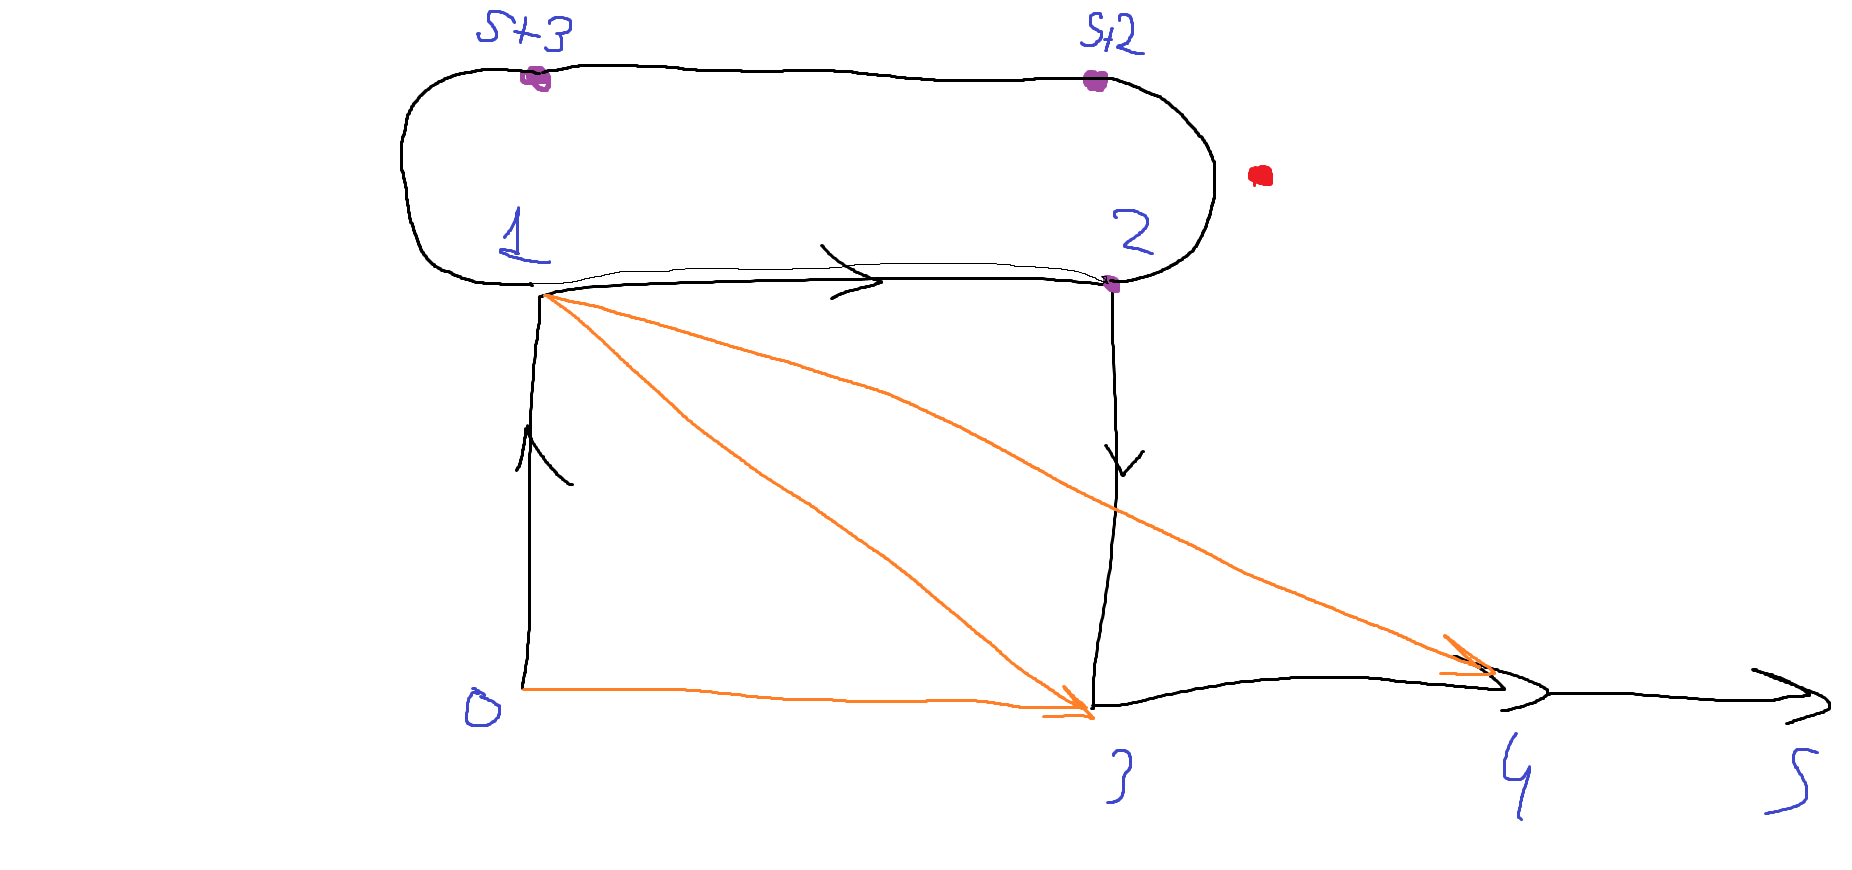 5+3 5+2
1 2
0
3 4 5